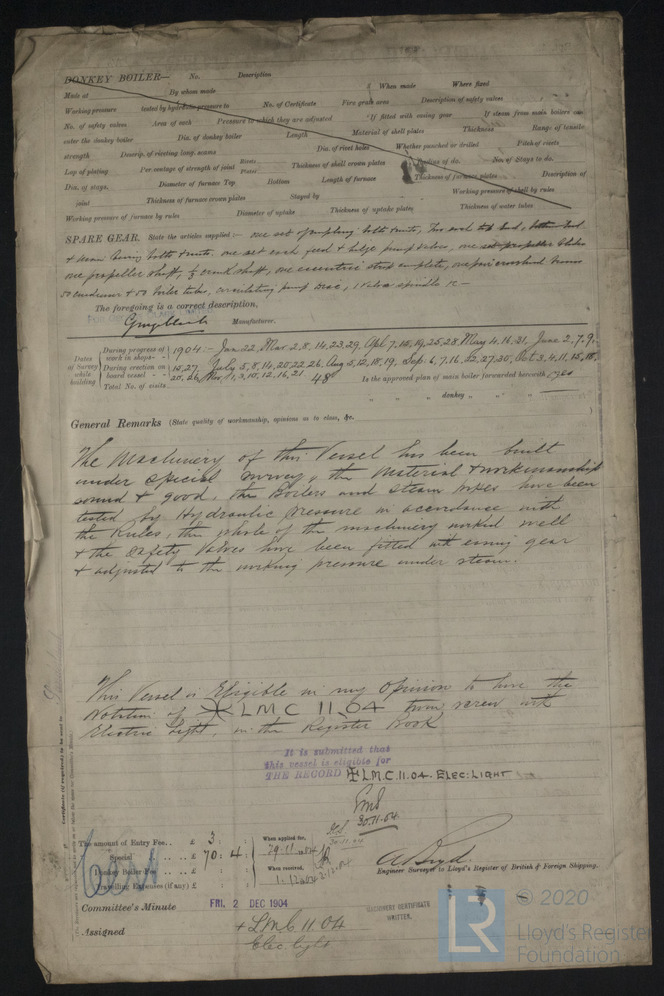 DONKEY BOILER— No. Description
Made at By whom made When made Where fixed
Working pressure tested by hydraulic pressure to No. of Certificate Fire grate area Description of safety valves
No. of safety valves Area of each Pressure to which they are adjusted If fitted with easing gear If steam from main boilers can
enter the donkey boiler Dia. of donkey boiler Length Material of shell plates Thickness Range of tensile
strength Descrip. of riveting long. seams Dia. of rivet holes Whether punched or drilled Pitch of rivets
Lap of plating Per centage of strength of joint Rivets Plates Thickness of shell crown plates Radius of do. No. of Stays to do.
Dia. of stays. Diameter of furnace Top Bottom Length of furnace Thickness of furnace plates Description of
joint Thickness of furnace crown plates Stayed by Working pressure of shell by rules
Working pressure of furnace by rules Diameter of uptake Thickness of uptake plates Thickness of water tubes
SPARE GEAR. State the articles supplied:— one set of coupling bolts & nuts, Two each
& main bearing bolts & nuts, one set each feed & bilge pump valves, one
one propeller shaft, ½ crank shaft, one eccentric strap complete, one pair crosshead
50 condenser & 50 boiler tubes, circulating pump
The foregoing is a correct description,
Manufacturer.
Dates of Survey while building
During progress of work in shops -- 1904:— Jan 22, Mar 2.8, 14,23,29, Apl 7.15,19,25,28 May 4.16.21, June 2.7.9.
During erection on board vessel -- 15,27, July 5,8,14,20,22,26, Aug 5,12,18,19, Sep. 6,7,16,22,27,30, Oct 3,4,11,15,18,
20,26 Nov 1,3,10,12,16,21
Total No. of visits 48
Is the approved plan of main boiler forwarded herewith yes
" " donkey " " "
General Remarks (State quality of workmanship, opinions as to class, &c.
The Machinery of this Vessel has been built
under special survey, the material & workmanship
sound & good, the Boilers and Steam pipes have been
tested by Hydraulic pressure in accordance with
the Rules, the whole of the machinery worked well
& the safety valves have been fitted with easing gear
& adjusted to the working pressure under steam.
This Vessel is Eligible in my Opinion to have the
Notation of ✠ LMC 11.04 twin screw with
Electric Light, in the Register Book
It is submitted that
this vessel is eligible for
THE RECORD ✠ L.M.C. 11.04. ELEC: LIGHT
30.11.04
The amount of Entry Fee .. £ 3 :
Special .. .. £ 70 : 4 :
Donkey Boiler Fee .. .. £
Travelling Expenses (if any) £
When applied for,
29.11.04
When received,
1.12.04
A. Boyd.
Engineer Surveyor to Lloyd's Register of British & Foreign Shipping.
Committee's Minute FRI. 2 DEC 1904
Assigned + LMC 11.04
Elec. light
MACHINERY CERTIFICATE
WRITTEN.
© 2020
LR
Lloyd's Register
Foundation